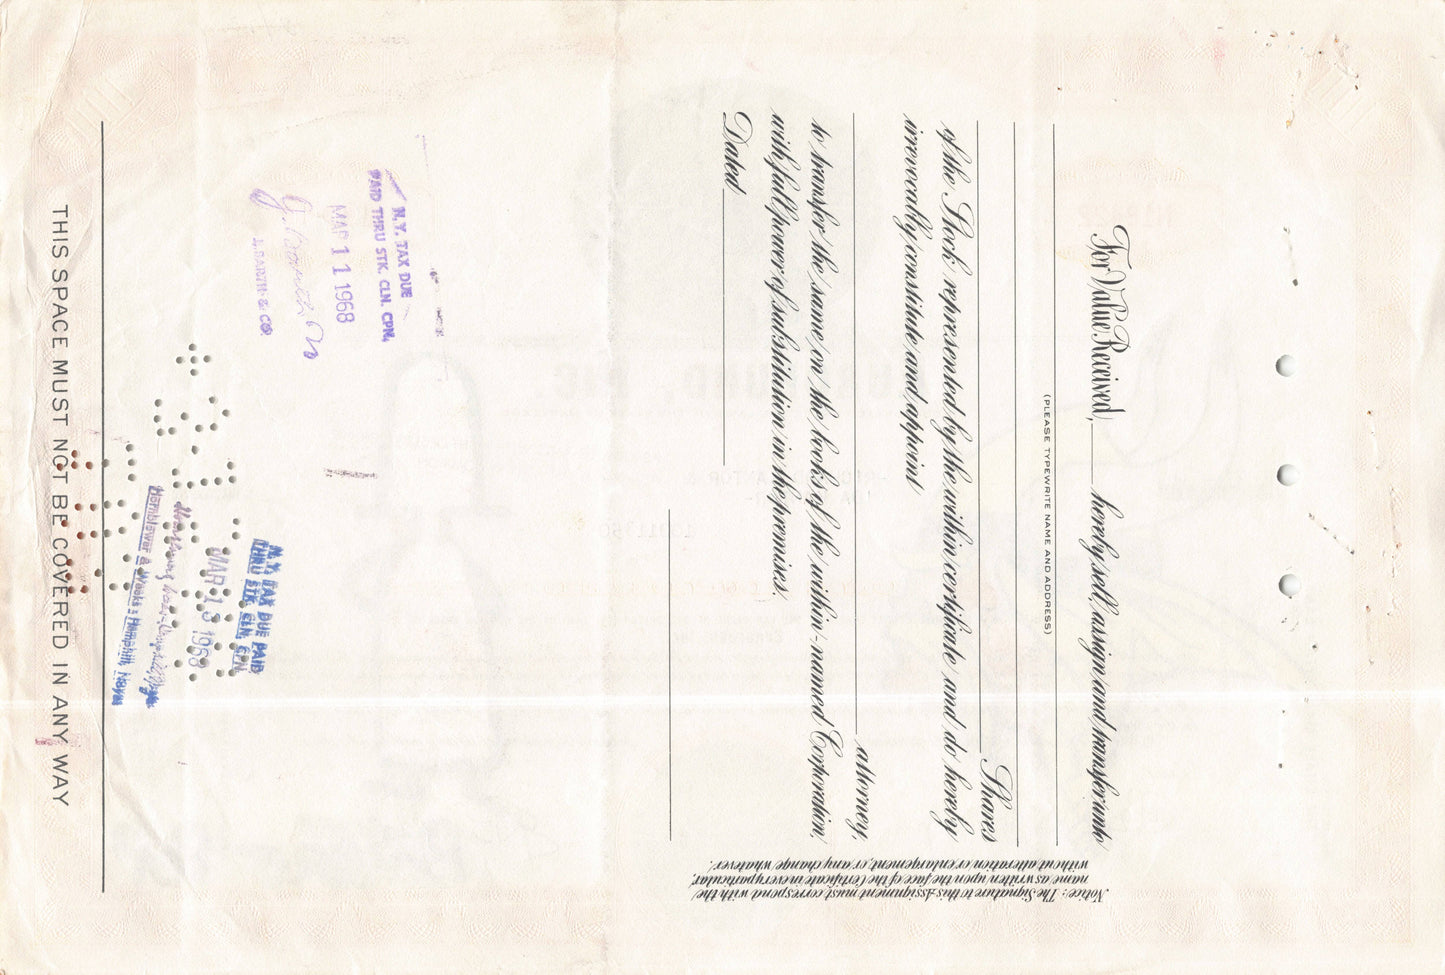 For Value Received, hereby sell, assign and transfer unto
(PLEASE TYPEWRITE NAME AND ADDRESS)
Shares
of the Stock represented by the within certificate and do hereby
irrevocably constitute and appoint
attorney,
to transfer the same on the books of the within-named Corporation,
with full power of substitution in the premises.
Dated
Notice: The Signature to this Assignment must correspond with the
name as written upon the face of the Certificate in every particular,
without alteration or enlargement, or any change whatever.
N.Y. TAX DUE
PAID THRU STK. CLN. CPN.
MAR 11 1968
J. BARTH & CO.
N.Y. TAX DUE PAID
THRU STK. CLN. CPN.
MAR 13 1968
Hornblower & Weeks - Hemphill, Noyes
THIS SPACE MUST NOT BE COVERED IN ANY WAY